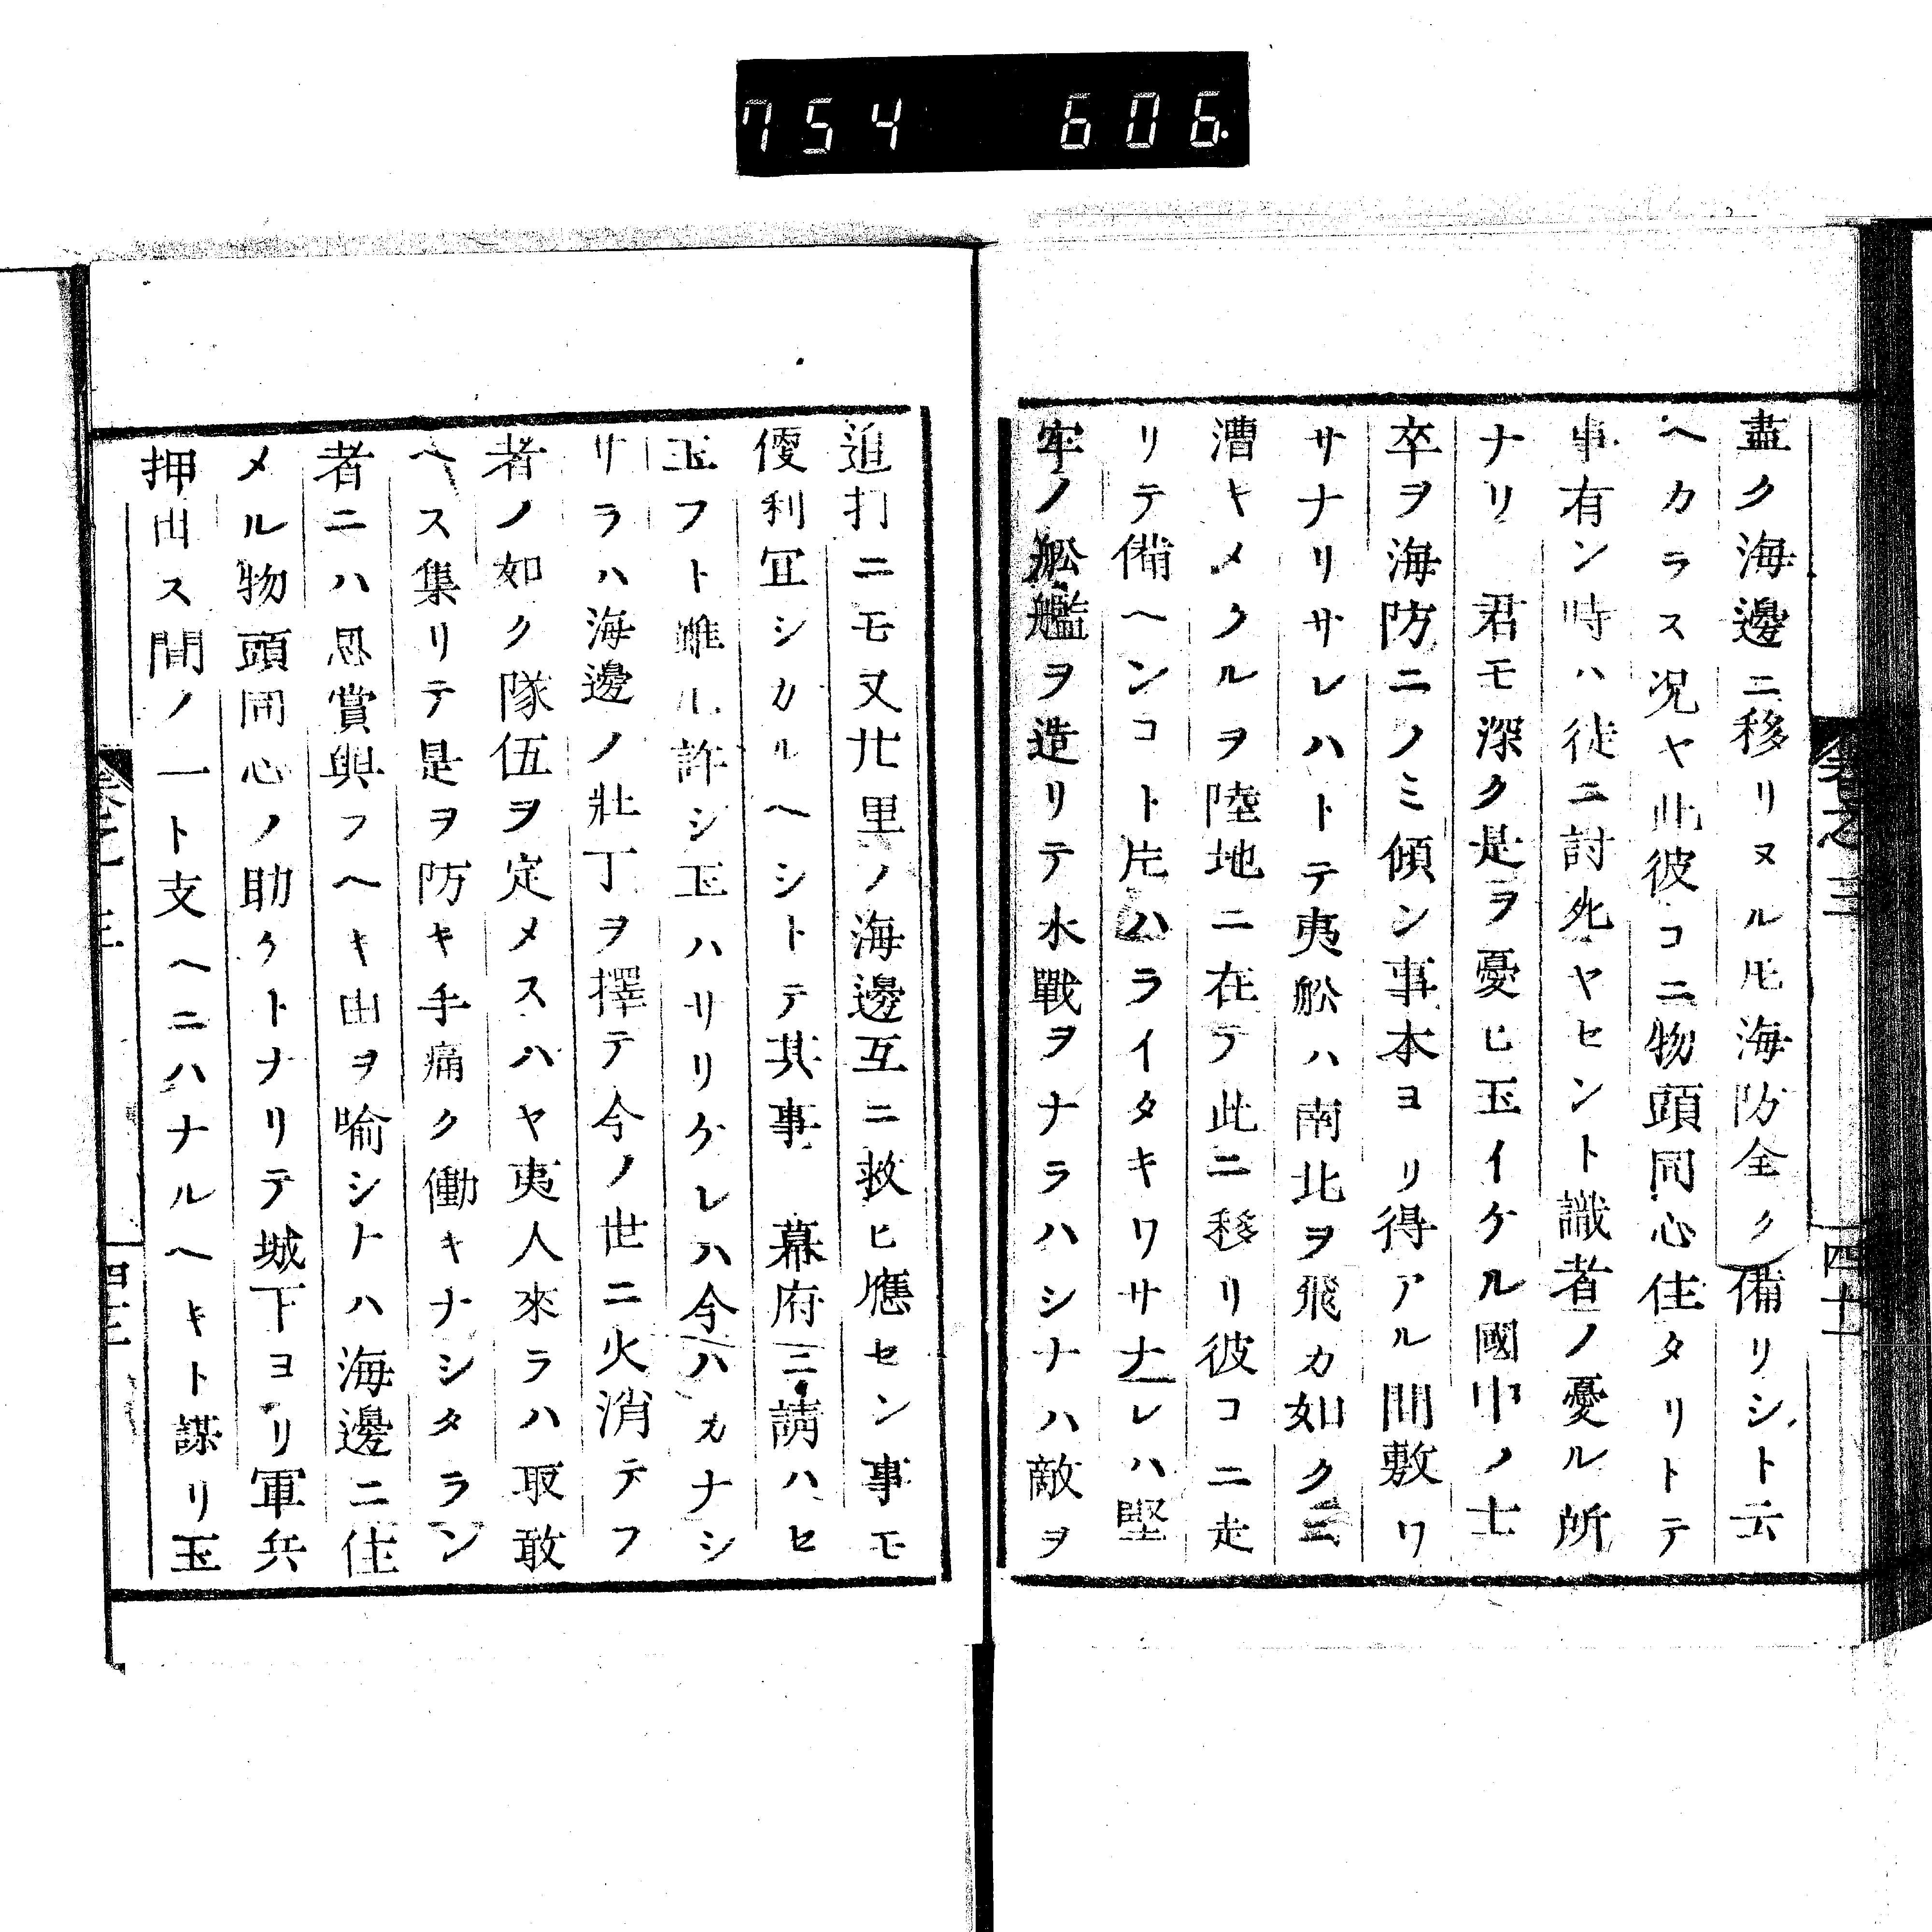 754 606.
卷之三 四十一
盡ク海邊ニ移リヌル𪜈海防全ク備リシト云
ヘカラス況ヤ此彼コニ物頭同心住タリトテ
事有ン時ハ徒ニ討死ヤセント識者ノ憂ル所
ナリ 君モ深ク是ヲ憂ヒ玉イケル國中ノ士
卒ヲ海防ニノミ傾ン事本ヨリ得アル間敷ワ
サナリサレハトテ夷舩ハ南北ヲ飛カ如クニ
漕キメクルヲ陸地ニ在テ此ニ移リ彼コニ走
リテ備ヘンコト片ハライタキワサナレハ堅
牢ノ舩艦ヲ造リテ水戰ヲナラハシナハ敵ヲ
追打ニモ又廿里ノ海邊互ニ救ヒ應セン事モ
便利冝シカルヘシトテ其事 幕府ニ請ハセ
玉フト雖𪜈許シ玉ハサリケレハ今ハカナシ
サラハ海邊ノ壯丁ヲ擇テ今ノ世ニ火消テフ
者ノ如ク隊伍ヲ定メスハヤ夷人來ラハ取敢
ヘス集リテ是ヲ防キ手痛ク働キナシタラン
者ニハ恩賞與フヘキ由ヲ喩シトハ海邊ニ住
メル物頭同心ノ助クトナリテ城下ヨリ軍兵
押出ス間ノ一ト支ヘニハナルヘキト謀リ玉